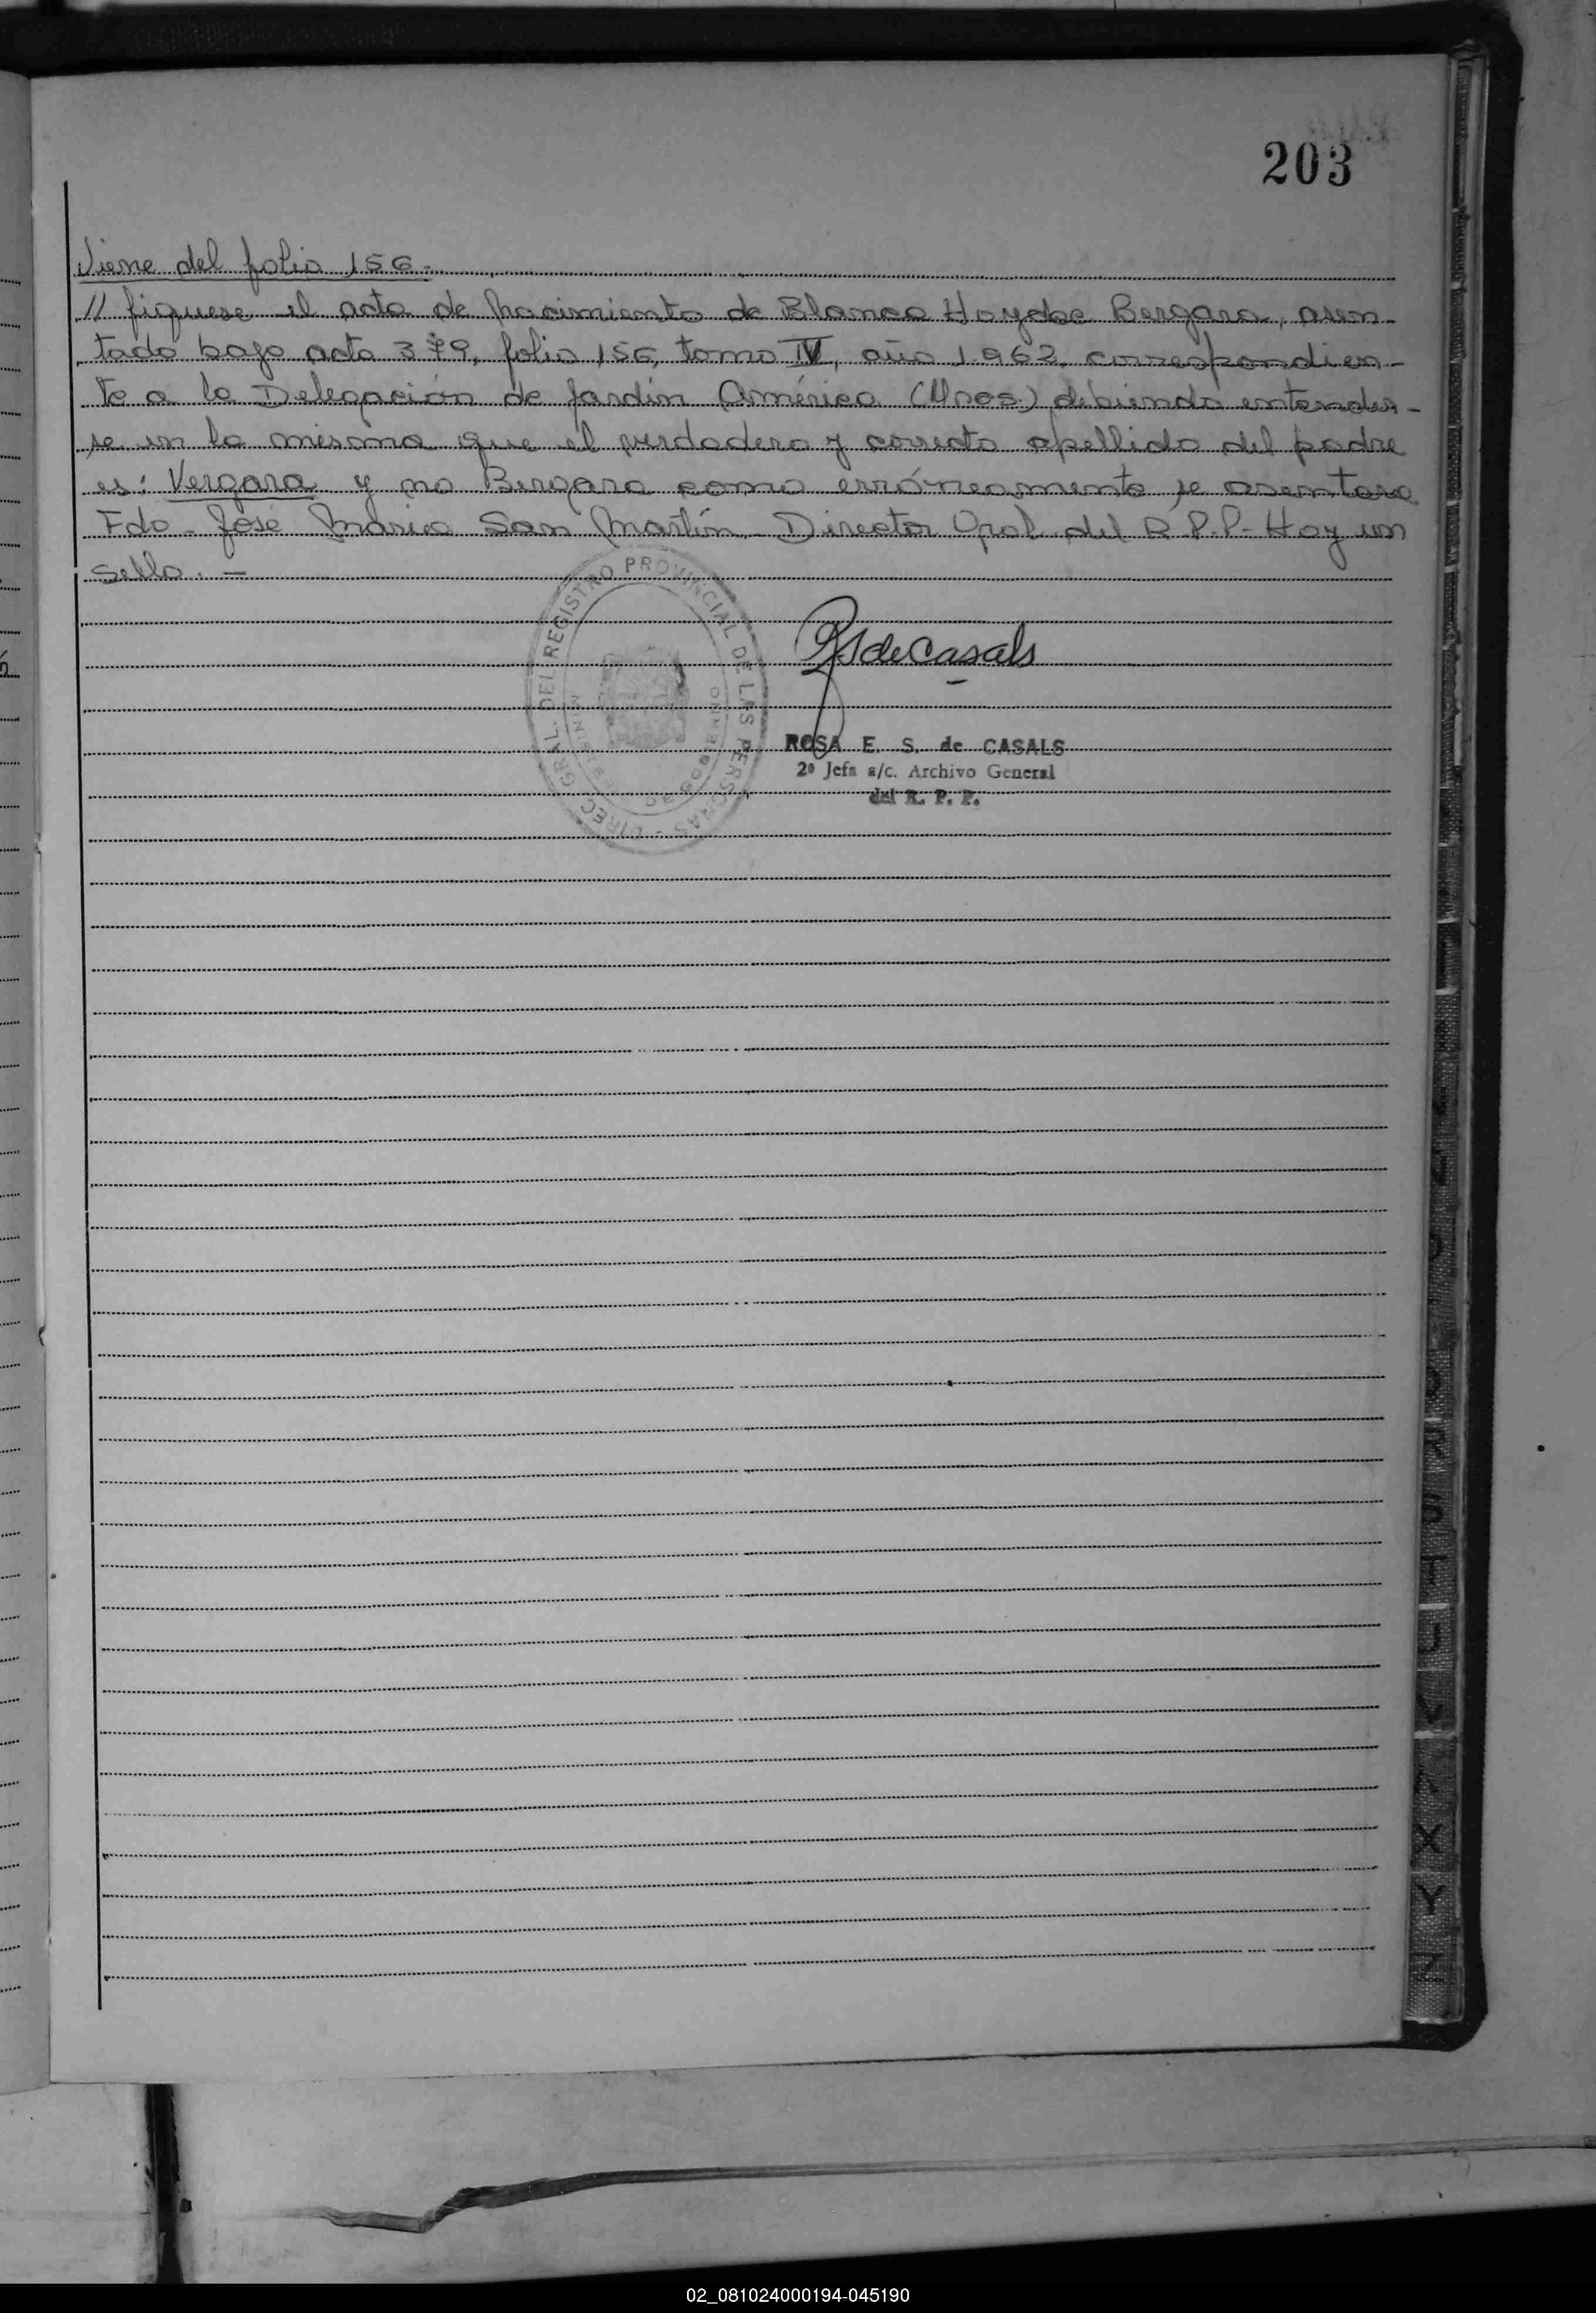 203
Viene del folio 156.-
// fíquese el acta de Nacimiento de Blanca Haydee Bergara, asen-
tada bajo acta 379, folio 156, tomo IV, año 1.962, correspondien-
te a la Delegación de Jardín América (Mnes.) debiendo entender-
se en la misma que el verdadero y correcto apellido del padre
es: Vergara y no Bergara como erróneamente se asentara
Fdo. José María San Martín - Director Gral. del R.P.P.- Hay un
sello. -
DIREC. GRAL. DEL REGISTRO PROVINCIAL DE LAS PERSONAS -
MINISTERIO DE GOBIERNO
RS de Casals
ROSA E. S. de CASALS
2º Jefa a/c. Archivo General
del R. P. P.
R
S
T
U
V
X
Y
Z
02_081024000194-045190